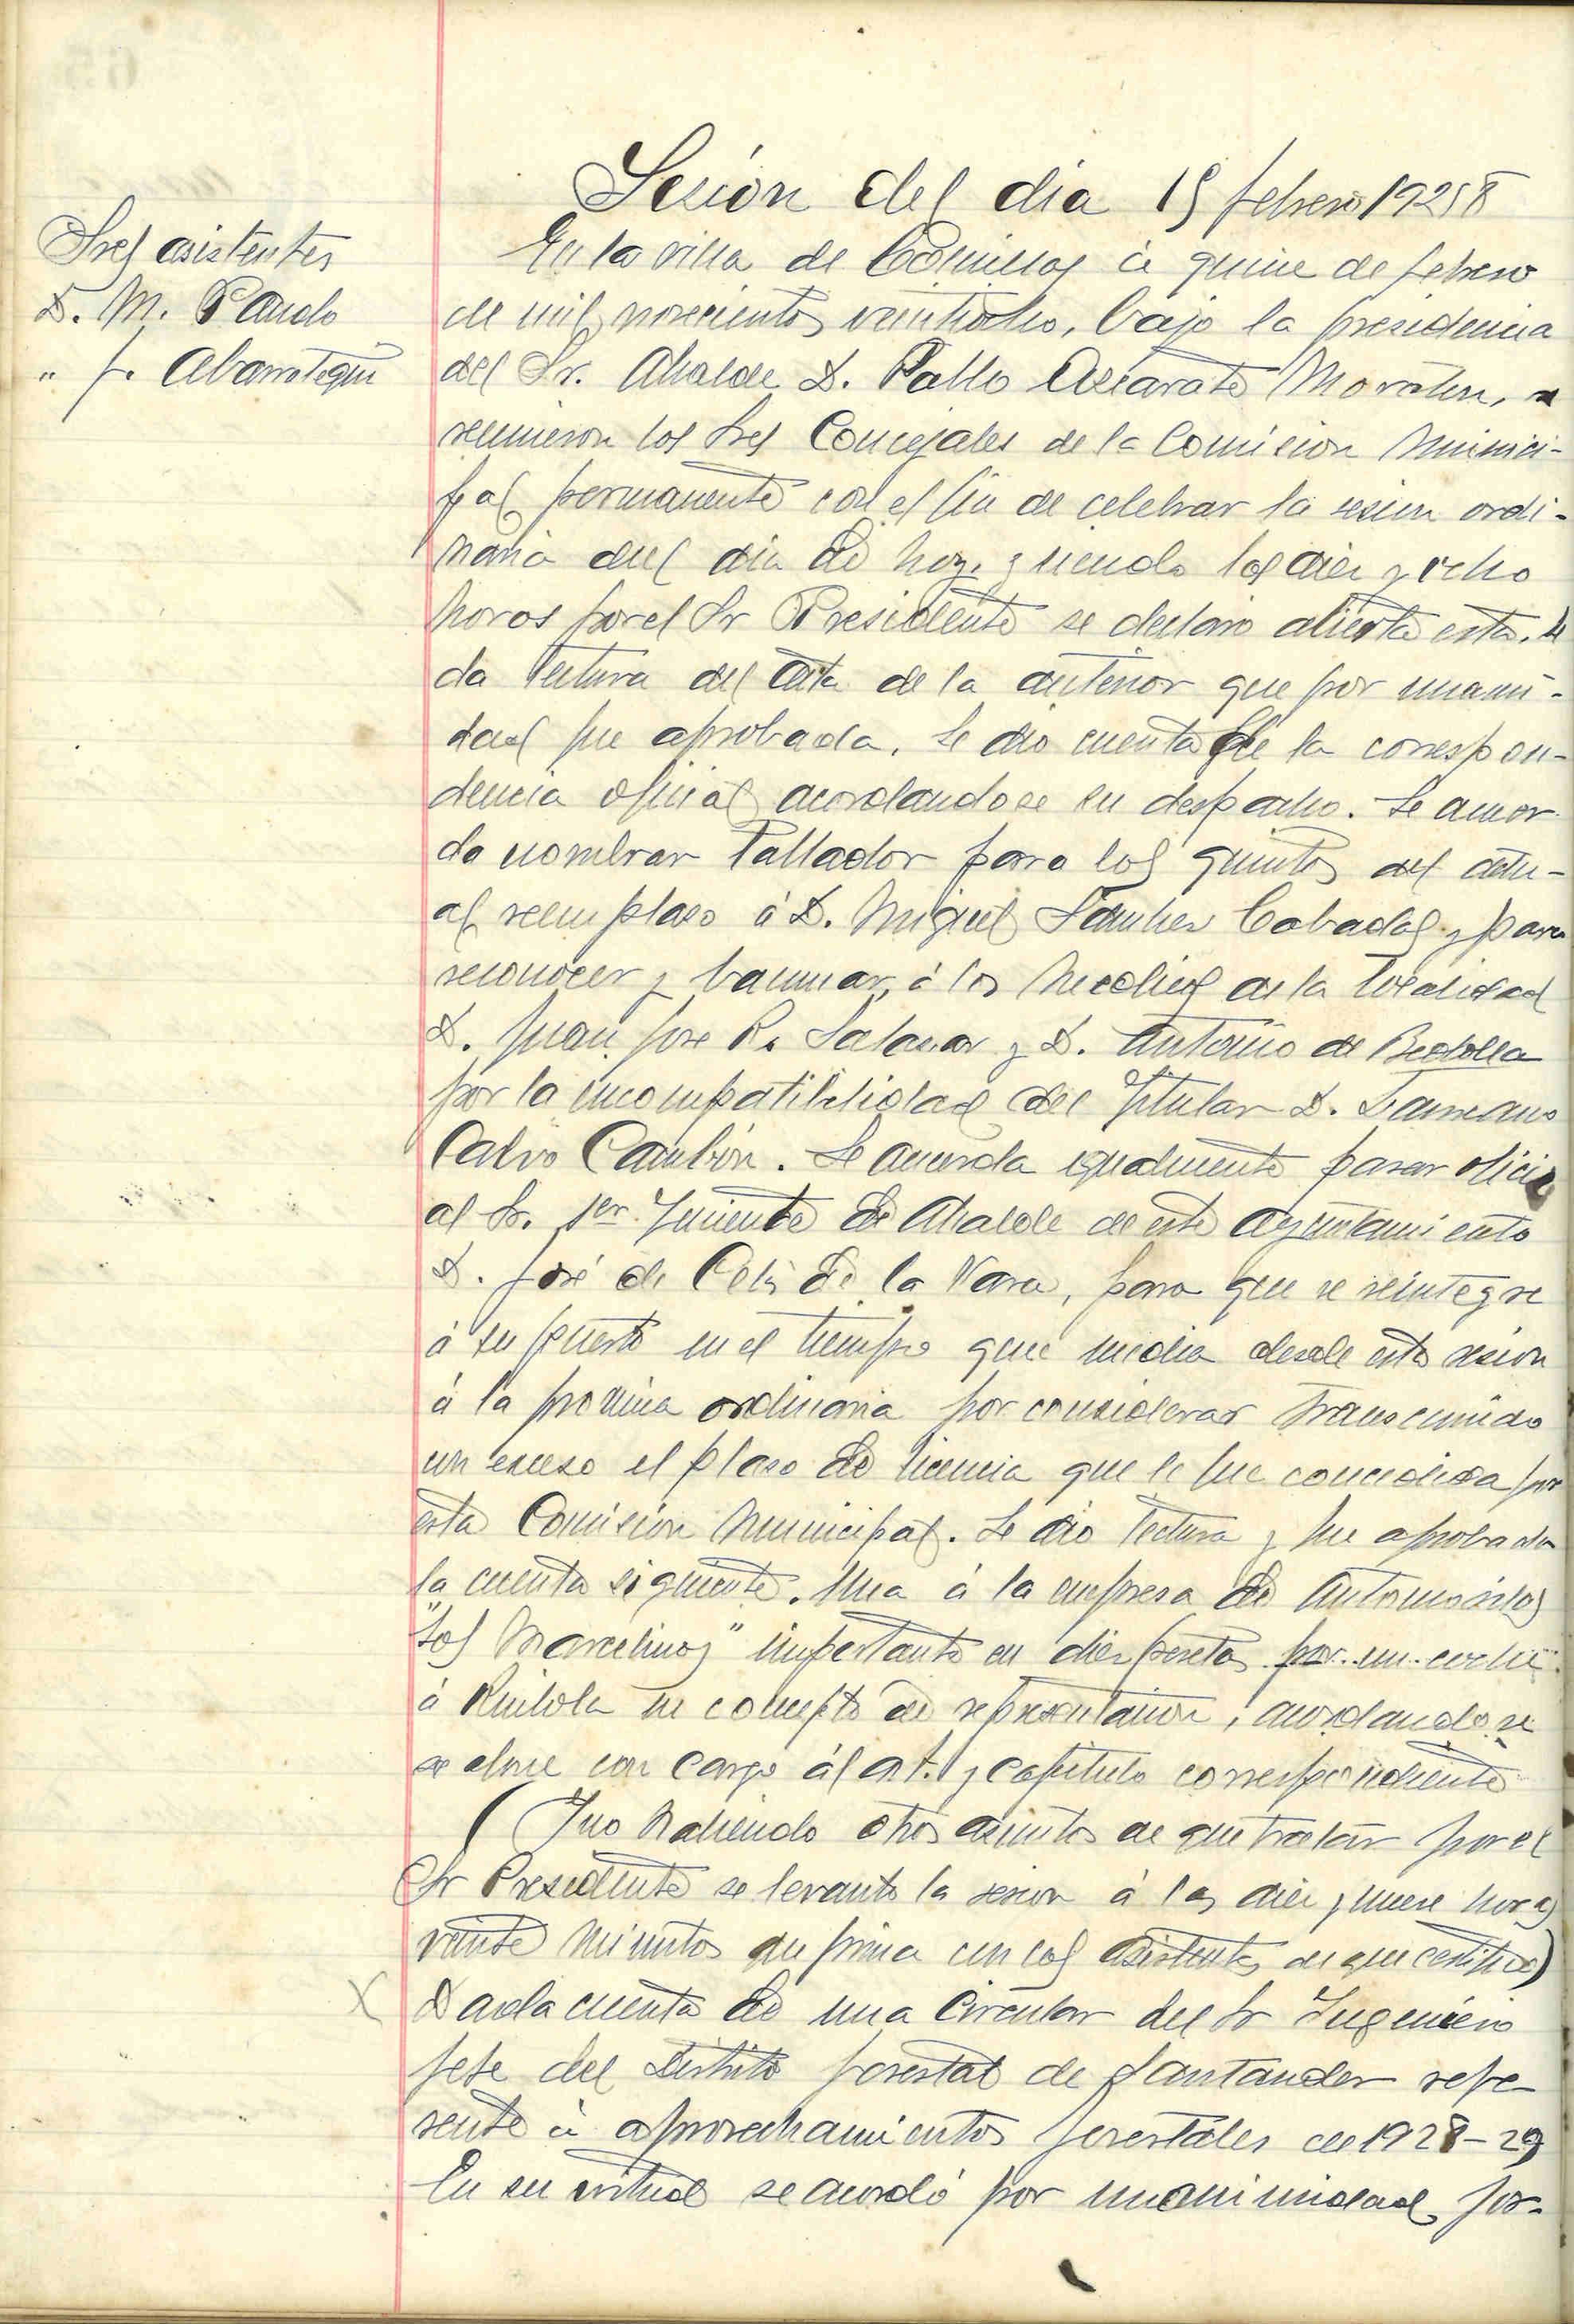 Sesión del dia 15 febrero 1928
Sres asistentes
D. M. Pando
" J. Abarrategui
En la villa de Comillas á quince de febrero
de mil novecientos veintiocho, bajo la presidencia
del Sr. Alcalde D. Pablo Azcarate Morales, se
reunieron los Sres Concejales de la Comisión Munici-
pal permanente con el fin de celebrar la sesion ordi-
naria del dia de hoy. y siendo las diez y ocho
horas por el Sr Presidente se declaro abierta esta. Se
da lectura del acta de la anterior que por unami-
dad fue aprobada. Se dio cuenta de la correspon-
dencia oficial acordandose su despacho. Se acuer
da nombrar Tallador para los quintos del actu-
al reemplazo á D. Miguel Sanchez Cabadas y para
reconocer y vacunar, á los Medicos de la localidad
D. Juan José R. Salazar y D. Antonio de Bedolla
por la incompatibilidad del Titular D.
Calvo Cambón. Se acuerda igualmente pasar oficio
al Sr. 1er Teniente de Alcalde de este Ayuntamiento
D. José de Celis de la Vara, para que se reintegre
á su puesto en el tiempo que media desde esta sesion
á la proxima ordinaria por considerar transcurrido
un exceso el plazo de licencia que le fue concedida por
esta Comisión Municipal. Se dio lectura y fue aprobada
la cuenta siguiente. Una á la empresa de Automoviles
"Los Marcelinos" importante en diez pesetas por un coche
á Ruiloba en concepto de representación, acordandose
se abone con cargo ál art. y capitulo correspondiente
(Y no habiendo otros asuntos de que tratar por el
Sr Presidente se levanto la sesion á las diez y nueve horas
veinte minutos que firma con los asistentes de que certifico)
X Dada cuenta de una Circular del Sr Ingeniero
Jefe del Distrito forestal de Santander refe-
rente á aprovechamientos forestales de 1928-29
En su virtud se acordó por unanimidad for-